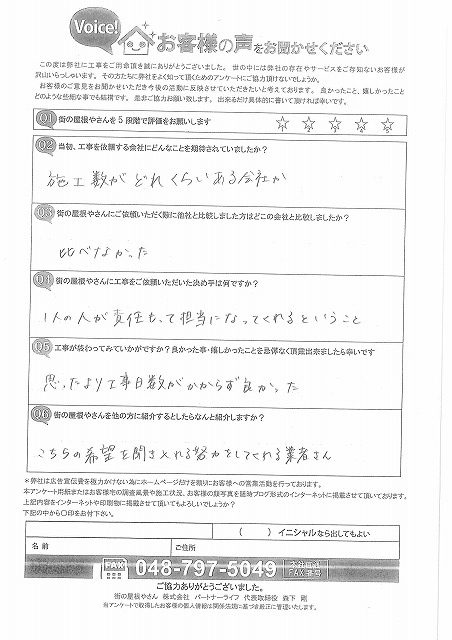 Voice!
お客様の声をお聞かせください
この度は弊社に工事をご用命頂き誠にありがとうございました。世の中には弊社の存在やサービスをご存知ないお客様が
沢山いらっしゃいます。その方たちに弊社をよく知って頂くためのアンケートにご協力頂けないでしょうか。
お客様のご意見をお聞かせいただき今後の活動に反映させていただきたいと考えております。良かったこと、嬉しかったこと
どのような些細な事でも結構です。是非ご協力お願い致します。出来るだけ具体的に書いて頂ければ幸いです。
Q1 街の屋根やさんを5段階で評価をお願いします ☆ ☆ ☆ ☆ ☆
Q2 当初、工事を依頼する会社にどんなことを期待されていましたか?
施工数がどれくらいある会社か
Q3 街の屋根やさんにご依頼いただく際に他社と比較しました方はどこの会社と比較しましたか?
比べなかった
Q4 街の屋根やさんに工事をご依頼いただいた決め手は何ですか?
1人の人が責任もって担当になってくれるということ
Q5 工事が終わってみていかがですか?良かった事・嬉しかったことを忌憚なく頂戴出来ましたら幸いです
思ったより工事日数がかからず良かった
Q6 街の屋根やさんを他の方に紹介するとしたらなんと紹介しますか?
こちらの希望を聞き入れる努力をしてくれる業者さん
*弊社は広告宣伝費を極力かけない為にホームページだけを頼りにお客様への営業活動を行っております。
本アンケート用紙またはお客様宅の調査風景や施工状況、お客様の顔写真を随時ブログ形式のインターネットに掲載させて頂いております。
上記内容をインターネットや印刷物に掲載させて頂いてもよろしいでしょうか?
下記の中から〇印をお付下さい。
( ) イニシャルなら出してもよい
名前 ご住所
FAX 048-797-5049 本社直通 FAX番号
ご協力ありがとうございました。
街の屋根やさん 株式会社 パートナーライフ 代表取締役 森下 剛
当アンケートで取得したお客様の個人情報は関係法規に基づき厳正に管理いたします。